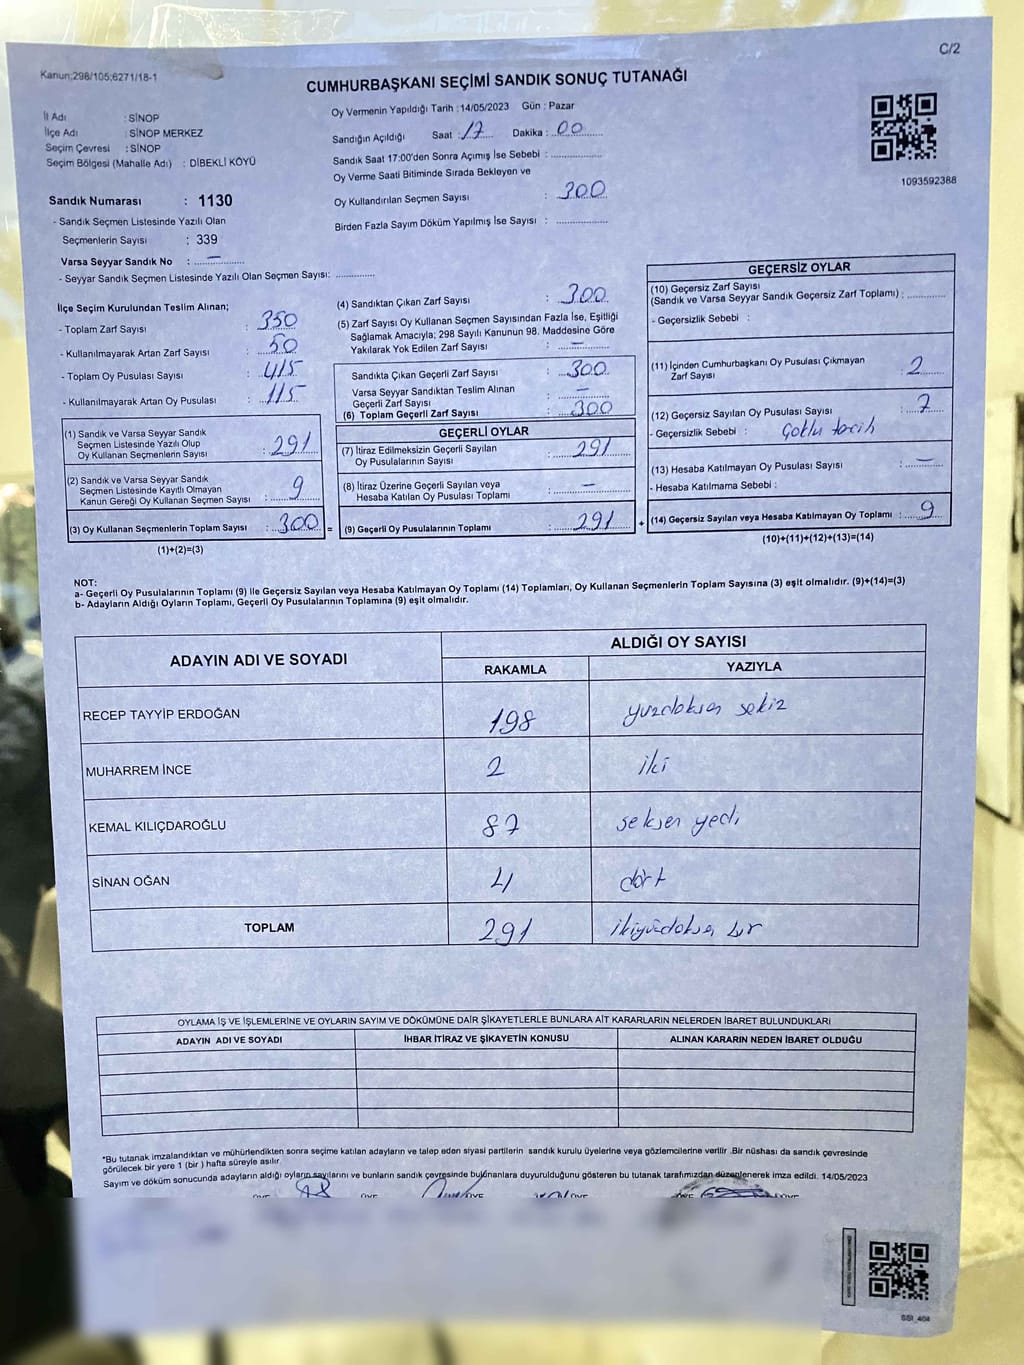 C/2
Kanun;298/105;6271/18-1
CUMHURBAŞKANI SEÇİMİ SANDIK SONUÇ TUTANAĞI
İl Adı : SİNOP
İlçe Adı : SİNOP MERKEZ
Seçim Çevresi : SİNOP
Seçim Bölgesi (Mahalle Adı) : DİBEKLİ KÖYÜ
Sandık Numarası : 1130
- Sandık Seçmen Listesinde Yazılı Olan
Seçmenlerin Sayısı : 339
Varsa Seyyar Sandık No : —
- Seyyar Sandık Seçmen Listesinde Yazılı Olan Seçmen Sayısı: ............
Oy Vermenin Yapıldığı Tarih : 14/05/2023 Gün : Pazar
Sandığın Açıldığı Saat : 17 Dakika : 00
Sandık Saat 17:00'den Sonra Açımış İse Sebebi : ................
Oy Verme Saati Bitiminde Sırada Bekleyen ve
Oy Kullandırılan Seçmen Sayısı : 300
Birden Fazla Sayım Döküm Yapılmış İse Sayısı : ................
1093592388
İlçe Seçim Kurulundan Teslim Alınan;
- Toplam Zarf Sayısı : 350
- Kullanılmayarak Artan Zarf Sayısı : 50
- Toplam Oy Pusulası Sayısı : 415
- Kullanılmayarak Artan Oy Pusulası : 115
(1) Sandık ve Varsa Seyyar Sandık
Seçmen Listesinde Yazılı Olup
Oy Kullanan Seçmenlerin Sayısı : 291
(2) Sandık ve Varsa Seyyar Sandık
Seçmen Listesinde Kayıtlı Olmayan
Kanun Gereği Oy Kullanan Seçmen Sayısı : 9
(3) Oy Kullanan Seçmenlerin Toplam Sayısı : 300 =
(1)+(2)=(3)
(4) Sandıktan Çıkan Zarf Sayısı : 300
(5) Zarf Sayısı Oy Kullanan Seçmen Sayısından Fazla İse, Eşitliği
Sağlamak Amacıyla; 298 Sayılı Kanunun 98. Maddesine Göre
Yakılarak Yok Edilen Zarf Sayısı : —
Sandıkta Çıkan Geçerli Zarf Sayısı : 300
Varsa Seyyar Sandıktan Teslim Alınan
Geçerli Zarf Sayısı : —
(6) Toplam Geçerli Zarf Sayısı : 300
GEÇERLİ OYLAR
(7) İtiraz Edilmeksizin Geçerli Sayılan
Oy Pusulalarının Sayısı : 291
(8) İtiraz Üzerine Geçerli Sayılan veya
Hesaba Katılan Oy Pusulası Toplamı : —
(9) Geçerli Oy Pusulalarının Toplamı : 291 +
GEÇERSİZ OYLAR
(10) Geçersiz Zarf Sayısı
(Sandık ve Varsa Seyyar Sandık Geçersiz Zarf Toplamı) : ............
- Geçersizlik Sebebi :
(11) İçinden Cumhurbaşkanı Oy Pusulası Çıkmayan
Zarf Sayısı : 2
(12) Geçersiz Sayılan Oy Pusulası Sayısı : 7
- Geçersizlik Sebebi : Çoklu tercih
(13) Hesaba Katılmayan Oy Pusulası Sayısı : —
- Hesaba Katılmama Sebebi :
(14) Geçersiz Sayılan veya Hesaba Katılmayan Oy Toplamı : 9
(10)+(11)+(12)+(13)=(14)
NOT:
a- Geçerli Oy Pusulalarının Toplamı (9) ile Geçersiz Sayılan veya Hesaba Katılmayan Oy Toplamı (14) Toplamları, Oy Kullanan Seçmenlerin Toplam Sayısına (3) eşit olmalıdır. (9)+(14)=(3)
b- Adayların Aldığı Oyların Toplamı, Geçerli Oy Pusulalarının Toplamına (9) eşit olmalıdır.
ADAYIN ADI VE SOYADI
ALDIĞI OY SAYISI
RAKAMLA YAZIYLA
RECEP TAYYİP ERDOĞAN 198 yüzdoksan sekiz
MUHARREM İNCE 2 iki
KEMAL KILIÇDAROĞLU 87 seksen yedi
SİNAN OĞAN 4 dört
TOPLAM 291 ikiyüzdoksan bir
OYLAMA İŞ VE İŞLEMLERİNE VE OYLARIN SAYIM VE DÖKÜMÜNE DAİR ŞİKAYETLERLE BUNLARA AİT KARARLARIN NELERDEN İBARET BULUNDUKLARI
ADAYIN ADI VE SOYADI İHBAR İTİRAZ VE ŞİKAYETİN KONUSU ALINAN KARARIN NEDEN İBARET OLDUĞU
*Bu tutanak imzalandıktan ve mühürlendikten sonra seçime katılan adayların ve talep eden siyasi partilerin sandık kurulu üyelerine veya gözlemcilerine verilir .Bir nüshası da sandık çevresinde
görülecek bir yere 1 (bir ) hafta süreyle asılır.
Sayım ve döküm sonucunda adayların aldığı oyların sayılarını ve bunların sandık çevresinde bulunanlara duyurulduğunu gösteren bu tutanak tarafımızdan düzenlenerek imza edildi. 14/05/2023